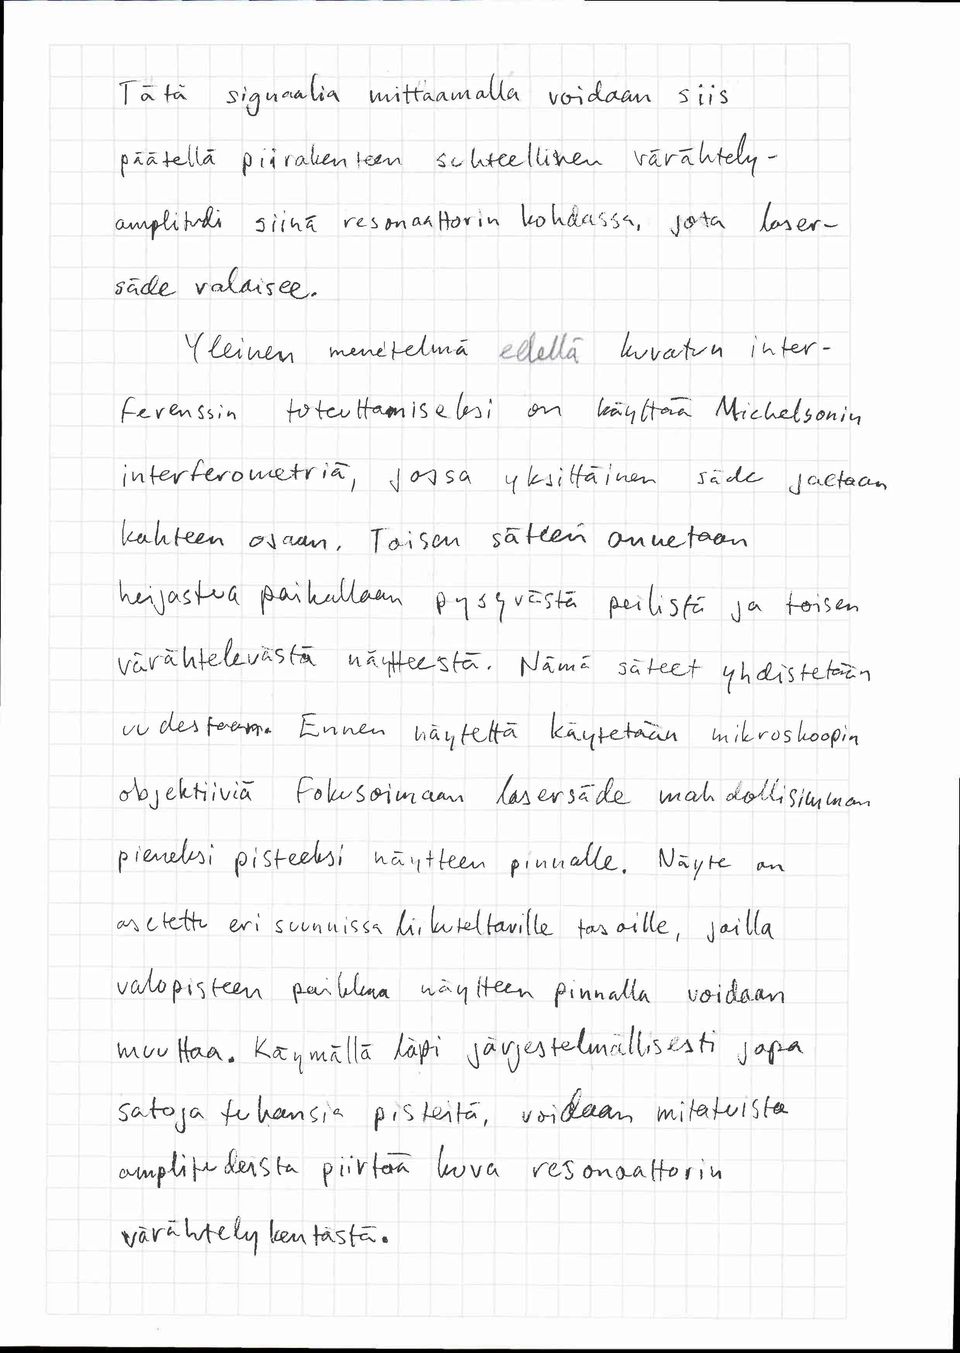 Tätä signaalia mittaamalla voidaan siis
päätellä piirakenteen suhteellinen värähtely-
amplitudi siinä resonaattorin kohdassa, jota laser-
säde valaisee.
Yleinen menetelmä edellä kuvatun inter-
ferenssin toteuttamiseksi on käyttää Michelsonin
interferometriä, jossa yksittäinen säde jaetaan
kahteen osaan. Toisen säteen annetaan
heijastua paikallaan pysyvästä peilistä ja toisen
värähtelevästä näytteestä. Nämä säteet yhdistetään
uudestaan. Ennen näytettä käytetään mikroskoopin
objektiiviä fokusoimaan lasersäde mahdollisimman
pieneksi pisteeksi näytteen pinnalle. Näyte on
asetettu eri suunnissa liikuteltaville tasoille, joilla
valopisteen paikkaa näytteen pinnalla voidaan
muuttaa. Käymällä läpi järjestelmällisesti jopa
satoja tuhansia pisteitä, voidaan mitatuista
amplitudeista piirtää kuva resonaattorin
värähtelykentästä.